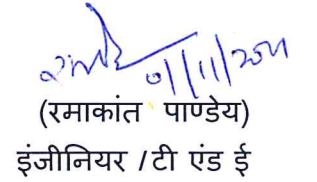 01/11/2011
(रमाकांत पाण्डेय)
इंजीनियर /टी एंड ई